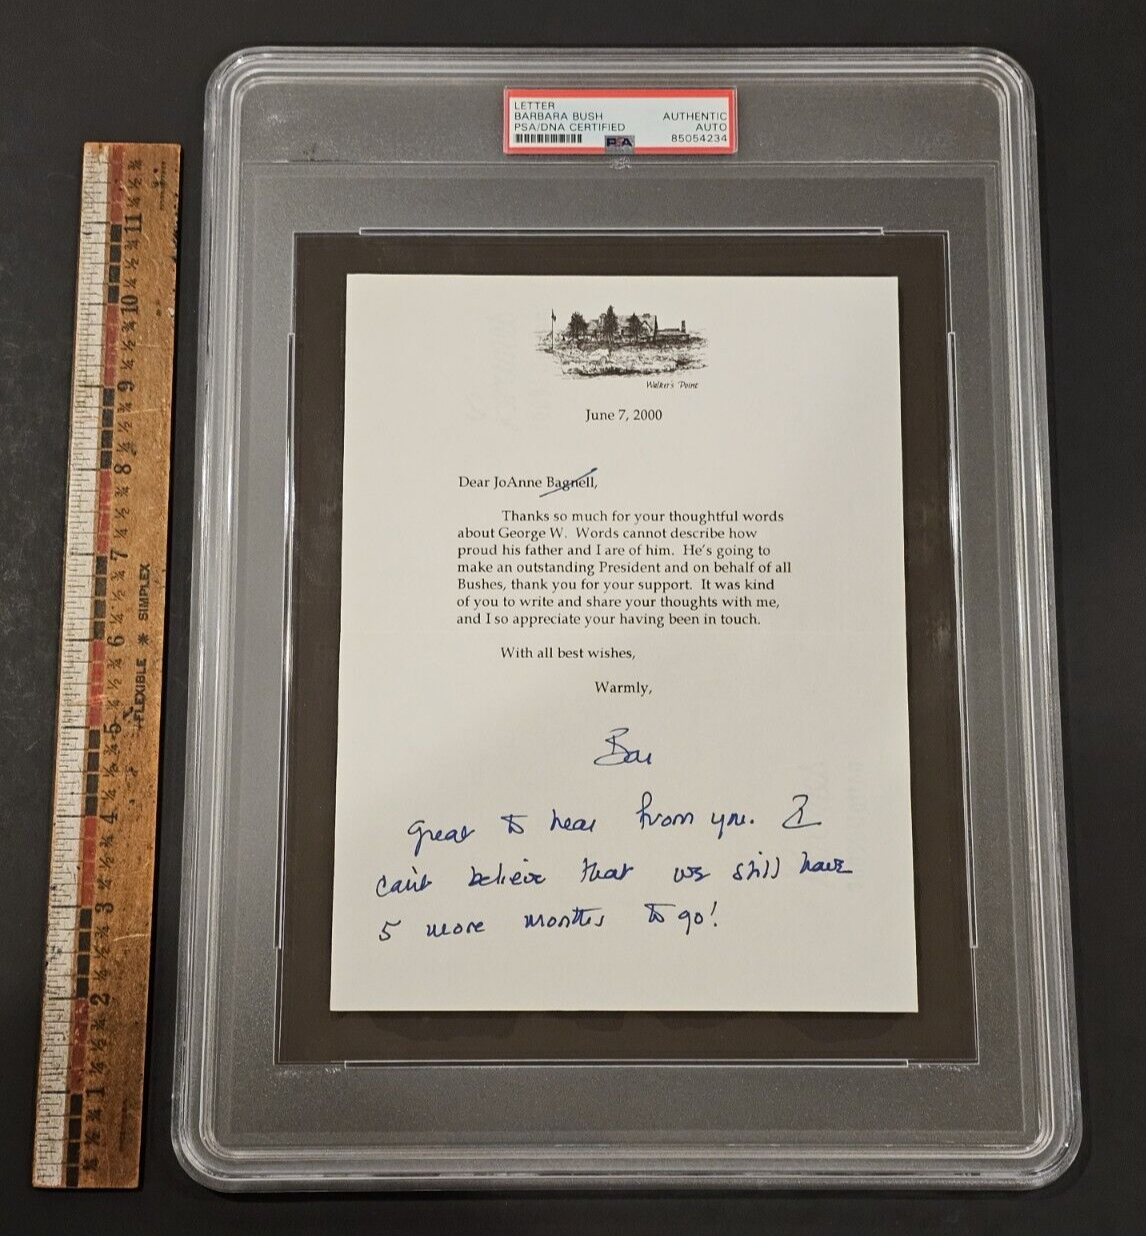 LETTER
BARBARA BUSH AUTHENTIC
PSA/DNA CERTIFIED AUTO
PSA 85054234
Walker's Point
June 7, 2000
Dear JoAnne Bagnell,
Thanks so much for your thoughtful words
about George W. Words cannot describe how
proud his father and I are of him. He's going to
make an outstanding President and on behalf of all
Bushes, thank you for your support. It was kind
of you to write and share your thoughts with me,
and I so appreciate your having been in touch.
With all best wishes,
Warmly,
Bar
Great to hear from you. I
can't believe that we still have
5 more months to go!
FLEXIBLE * SIMPLEX
1 2 3 4 5 6 7 8 9 10 11